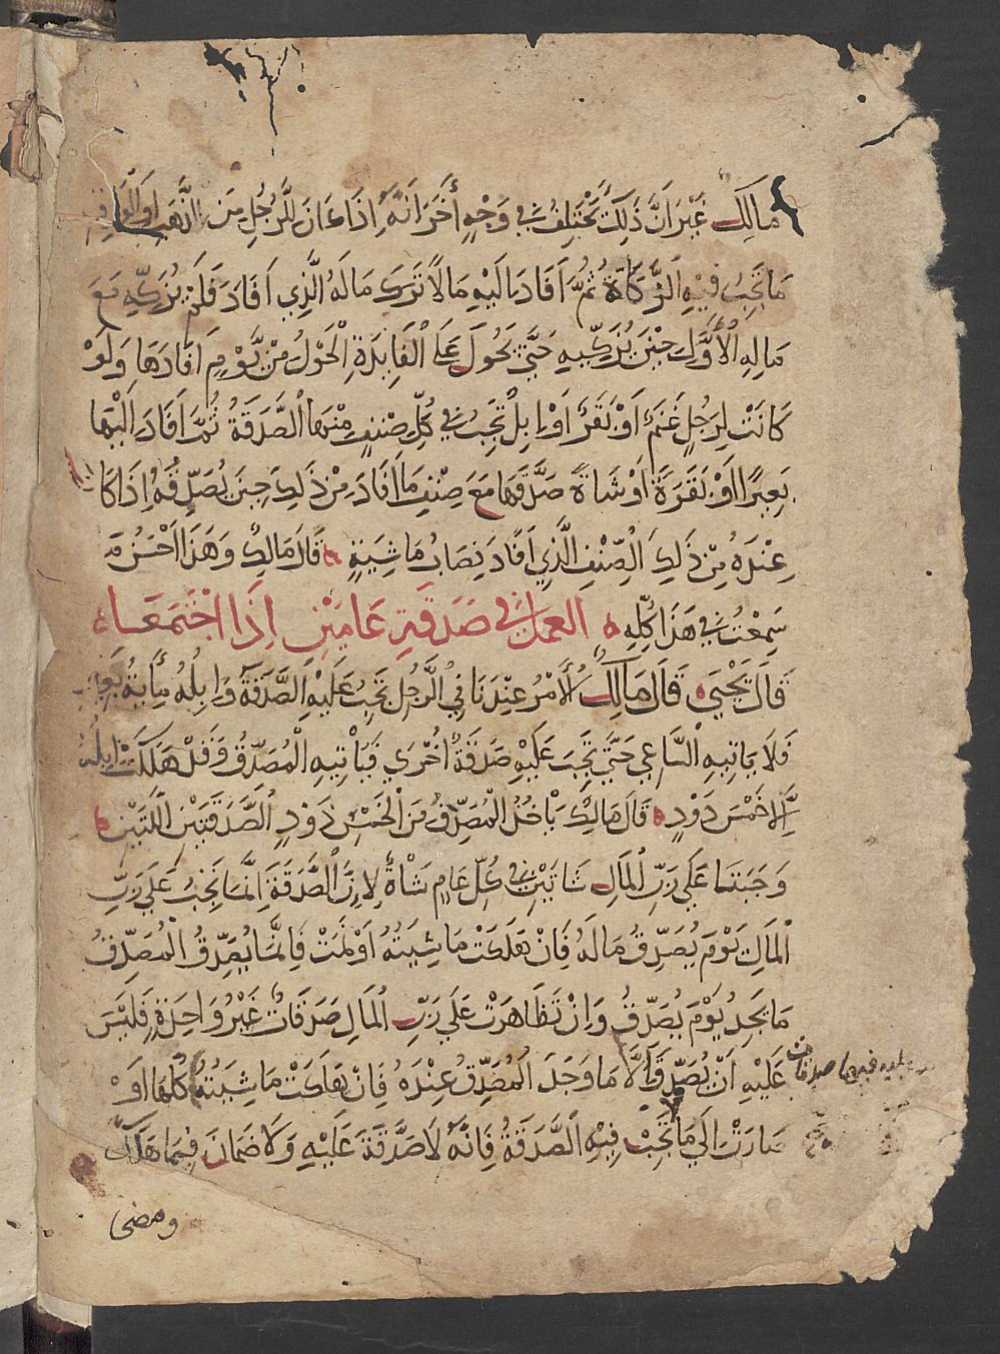 مَالِكٌ غَيْرَ اَنَّ ذَلِكَ يَخْتَلِفُ فِي وَجْهٍ أَخَرَ اَنَّهُ إِذَا كَانَ لِلرَّجُلِ مِنَ الذَّهَبِ اَوِ الْوَرِقِ
مَا تَجِبُ فِيْهِ الزَّكَاةُ ثُمَّ اَفَادَ اِلَيْهِ مَالًا تَرَكَ مَالَهُ الَّذِي اَفَادَ فَلَمْ يُزَكِّيهِ مَعَ
مَالِهِ الْأَوَّلِ حِيْنَ يُزَكِّيهِ حَتَّى يَحُولَ عَلَى الْفَايِدَةِ الْحَوْلُ مِنْ يَّوْمِ اَفَادَهَا وَلَوْ
كَانَتْ لِرَجُلٍ غَنَمٌ اَوْ بَقَرٌ اَوْ اِبِلٌ تَجِبُ فِي كُلِّ صِنْفٍ مِنْهَا الصَّدَقَةُ ثُمَّ اَفَادَ اِلَيْهَا
بَعِيْرًا اَوْ بَقَرَةً اَوْ شَاةً صَدَّقَهَا مَعَ صِنْفِ مَا اَفَادَ مِنْ ذَلِكَ حِينَ يُصَدِّقُهُ اِذَا كَا
عِنْدَهُ مِنْ ذَلِكَ الصِّنْفِ الَّذِي اَفَادَ نِصَابُ مَاشِيَةٍ ه قَالَ مَالِكٌ وَهَذَا اَحْسَنُ مَا
سَمِعْتُ فِي هَذَا كُلِّهِ ه العمل في صَدَقَةِ عَامَيْنِ إِذَا اجْتَمَعَا ه
قَالَ يَحْيَى ه قَالَ مَالِكٌ الْأَمْرُ عِنْدَنَا فِي الرَّجُلِ تَجِبُ عَلَيْهِ الصَّدَقَةُ وَاِبِلُهُ مِأْيَةُ بَعِيْرٍ
فَلَا يَاتِيهِ السَّاعِي حَتَّى تَجِبَ عَلَيْهِ صَدَقَةٌ اُخْرَي فَيَأْتِيهِ الْمُصَدِّقُ وَقَدْ هَلَكَتْ اِبِلُهُ
اِلَّا خَمْسَ ذَوْدٍ ه قَالَ مَالِكٌ يَاْخُذُ الْمُصَدِّقُ مِنَ الْخَمْسِ ذَوْدٍ الصَّدَقَتَيْنِ اللَّتَيْنِ
وَجَبَتَا عَلَى رَبِّ الْمَالِ شَاتَيْنِ فِي كُلِّ عَامٍ شَاةٌ لِاَنَّ الصَّدَقَةَ اِنَّمَا تَجِبُ عَلَى رَبِّ
الْمَالِ يَوْمَ يُصَدِّقُ مَالَهُ فَاِنْ هَلَكَتْ مَاشِيَتُهُ اَوْ نَمَتْ فَاِنَّمَا يُصَدِّقُ الْمُصَدِّقُ
مَا يَجِدُ يَوْمَ يُصَدِّقُ وَاِنْ تَظَاهَرَتْ عَلَى رَبِّ الْمَالِ صَدَقَاتٌ غَيْرُ وَاحِدَةٍ فَلَيْسَ
عَلَيْهِ اَنْ يُصَدِّقَ اِلَّا مَا وَجَدَ الْمُصَدِّقُ عِنْدَهُ فَاِنْ هَلَكَتْ مَاشِيَتُهُ كُلُّهَا اَوْ
عليه فيها صدقات
صَارَتْ اِلَى مَا تَجِبُ فِيْهِ الصَّدَقَةُ فَاِنَّهُ لَا صَدَقَةَ عَلَيْهِ وَلَا ضَمَانَ فِيْمَا هَلَكَ
صح
ومضى